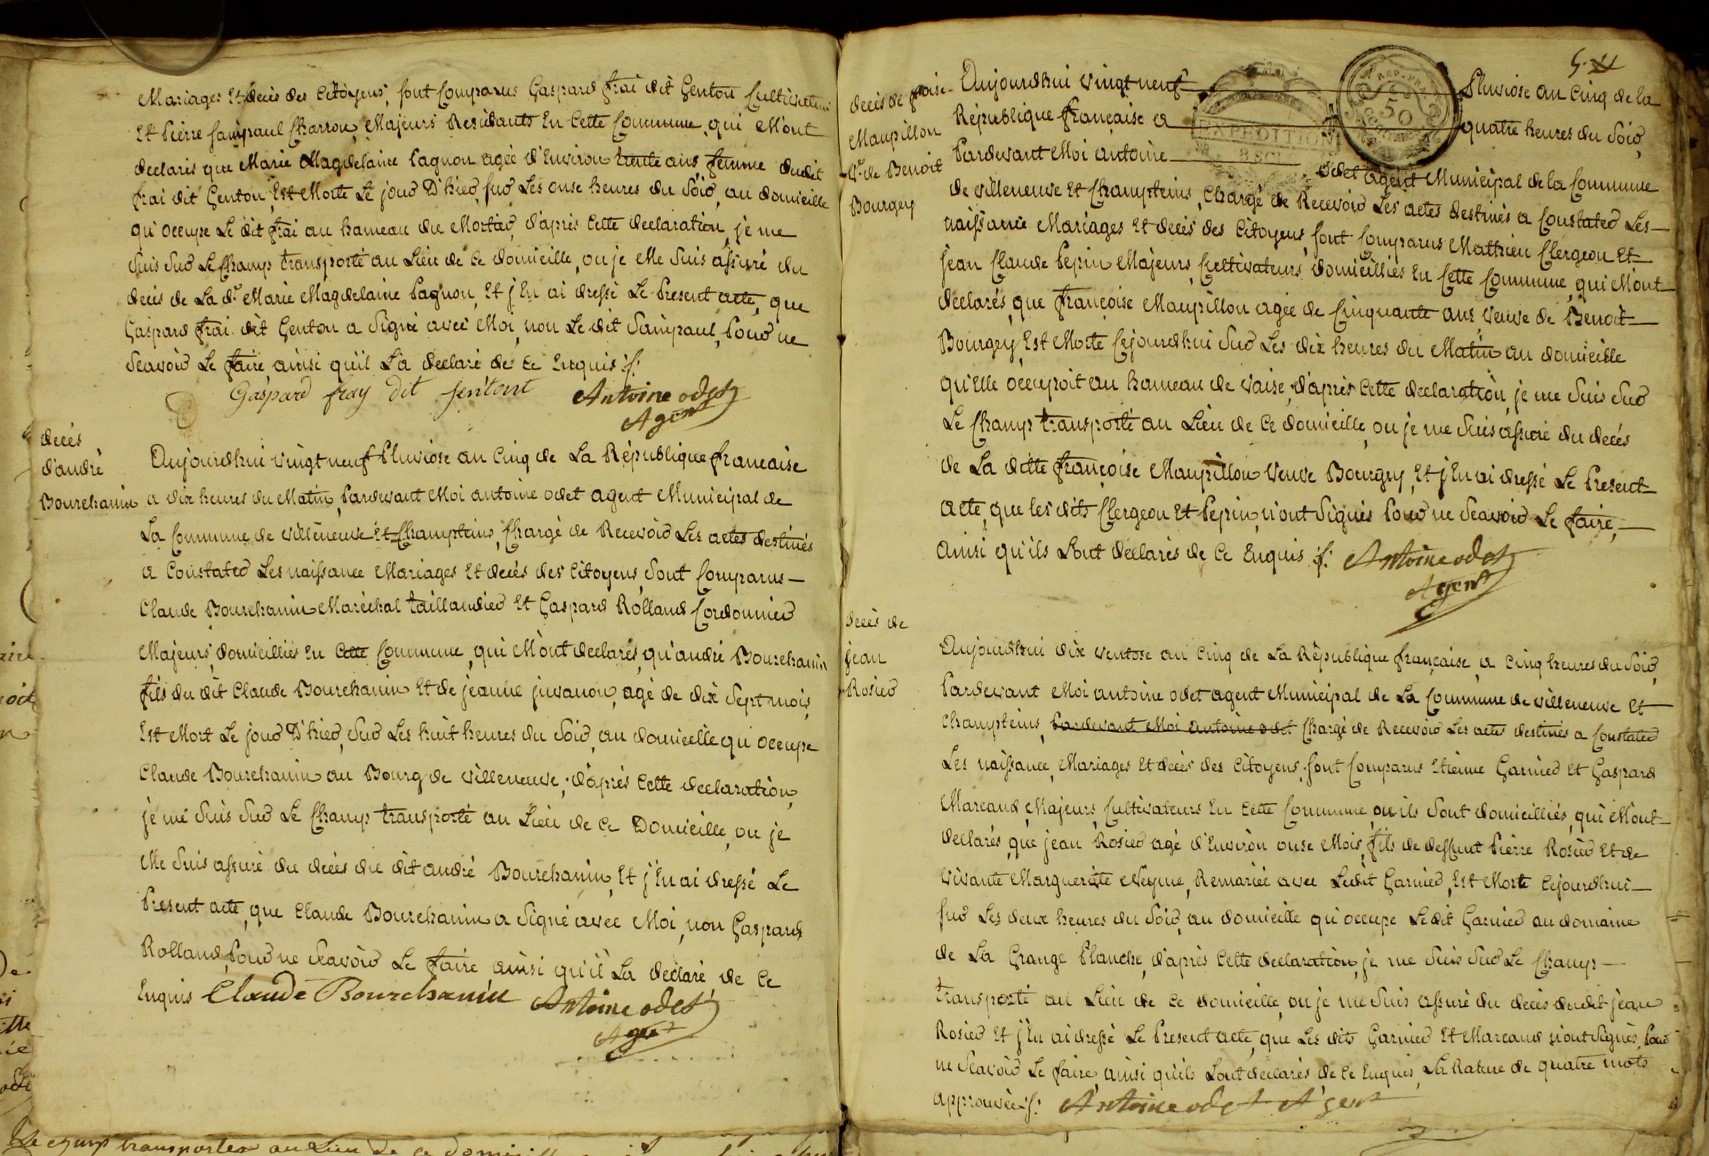 Mariages Et décès des Citoÿens, sont Comparus Gaspard frai dit Genton Cultivateur
Et Pierre sainpaul Charron, Majeurs Residants En Cette Commune, qui M'ont
declarés que Marie Magdelaine Pagnon agée d'Environ trente ans femme dudit
frai dit Genton, Est Morte Le jour D'hier, sur Les onse heures du Soir, au domicille
qu'occupe Le dit frai au hameau du Mortier, d'après Cette declaration, je me
Suis Sur Le Champ transporté au Lieu de Ce domicille, ou je Me Suis assuré du
décès de La de Marie Magdelaine Pagnon, Et j'En ai dressé Le Present acte, que
Gaspard frai dit Genton a Signé avec Moi, non Le dit Sainpaul, Pour ne
Seavoir Le faire ainsi qu'il L'a declaré de Ce Enquis
Gaspard fray dit jentont Antoine odet
Agent
décès
d'andré
Bourchanin
Aujourdhui vingt neuf Pluviose an Cinq de La République francaise
a dix heures du Matin, Pardevant Moi antoine odet agent Municipal de
La Commune de villeneuve Et Champteins, Chargé de Recevoir Les actes destinés
a Constater Les naissance Mariages Et décès des Citoyens, Sont Comparus
Claude Bourchanin Maréchal taillandier Et Gaspard Rolland Cordonnier
Majeurs, domicilliés En Cette Commune, qui M'ont declarés, qu'andré Bourchanin
fils du dit Claude Bourchanin Et de jeanne juvanon, agé de dix Sept mois,
Est Mort Le jour D'hier, Sur Les huit heures du Soir, au domicelle qu'occupe
Claude Bourchanin au Bourg de villeneuve; d'après Cette declaration,
je me Suis Sur Le Champ transporté au Lieu de Ce Domicille, ou je
Me Suis assuré du décès du dit andré Bourchanin, Et j'En ai dressé Le
Present acte, que Claude Bourchanin a Signé avec Moi, non Gaspard
Rolland, Pour ne Seavoir Le faire ainsi qu'il La declaré de Ce
Enquis Claude Bourchanin Antoine odet
Agent
décès de
Maupillon
Ve de Benoit
Bourgey
Aujourdhui vingt neuf Pluviose an Cinq de La
République française a quatre heures du Soir,
Pardevant Moi antoine odet agent Municipal de la Commune
EXPEDITION
50
de villeneuve Et Champteins, Chargé de Recevoir Les actes destinés a Constater Les
naissance Mariages Et décès des Citoyens, sont Comparus Matthieu Clergeon Et
jean Claude Pepin Majeurs, Cultivateurs domicilliés En Cette Commune, qui M'ont
declarés, que françoise Maupillon agée de Cinquante ans veuve de Benoit
Bourgey, Est Morte Cejourdhui Sur Les dix heures du Matin au domicille
qu'Elle occupoit au hameau de vaise, d'après Cette declaration, je me Suis Sur
Le Champ transporté au Lieu de Ce domicille, ou je me Suis assuré du décès
de La ditte françoise Maupillon Veuve Bourgey, Et j'En ai dressé Le Present
acte, que les dits Clergeon Et Pepin, n'ont Signés Pour ne Seavoir Le faire,
ainsi qu'ils Lont declarés de Ce Enquis Antoine odet
Agent
décès de
jean
Rosier
Aujourdhui dix ventose an Cinq de La République française, a Cinq heures du Soir,
Pardevant Moi antoine odet agent Municipal de La Commune de villeneuve Et
Champteins, Pardevant Moi antoine odet Chargé de Recevoir Les actes destinés a Constater
Les naissance, Mariages Et décès des Citoyens, sont Comparus Etienne Garnier Et Gaspard
Marcand, Majeurs, Cultivateurs En Cette Commune ou ils Sont domicilliés, qui M'ont
declarés, que jean Rosier agé d'Environ onse Mois, fils de deffunt Pierre Rosier Et de
vivante Marguerite Neyme, Remariée avec Ledit Garnier, Est Morte Cejourdhui
sur Les deux heures du Soir, au domicille qu'occupe Le dit Garnier au domaine
de La Grange Planche, d'après Cette declaration, je me Suis Sur Le Champ
transporté au Lieu de Ce domicille, ou je me Suis assuré du décès dudit jean
Rosier Et j'En ai dressé Le Present acte, que Les dits Garnier Et Marcand n'ont Signés, Pour
ne Seavoir Le faire, ainsi qu'ils Lont declarés de Ce Enquis, La Rature de quatre mots
approuvée Antoine odet Agent